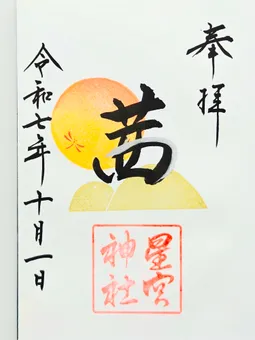 奉拝
茜
星宮
神社
令和七年十月一日